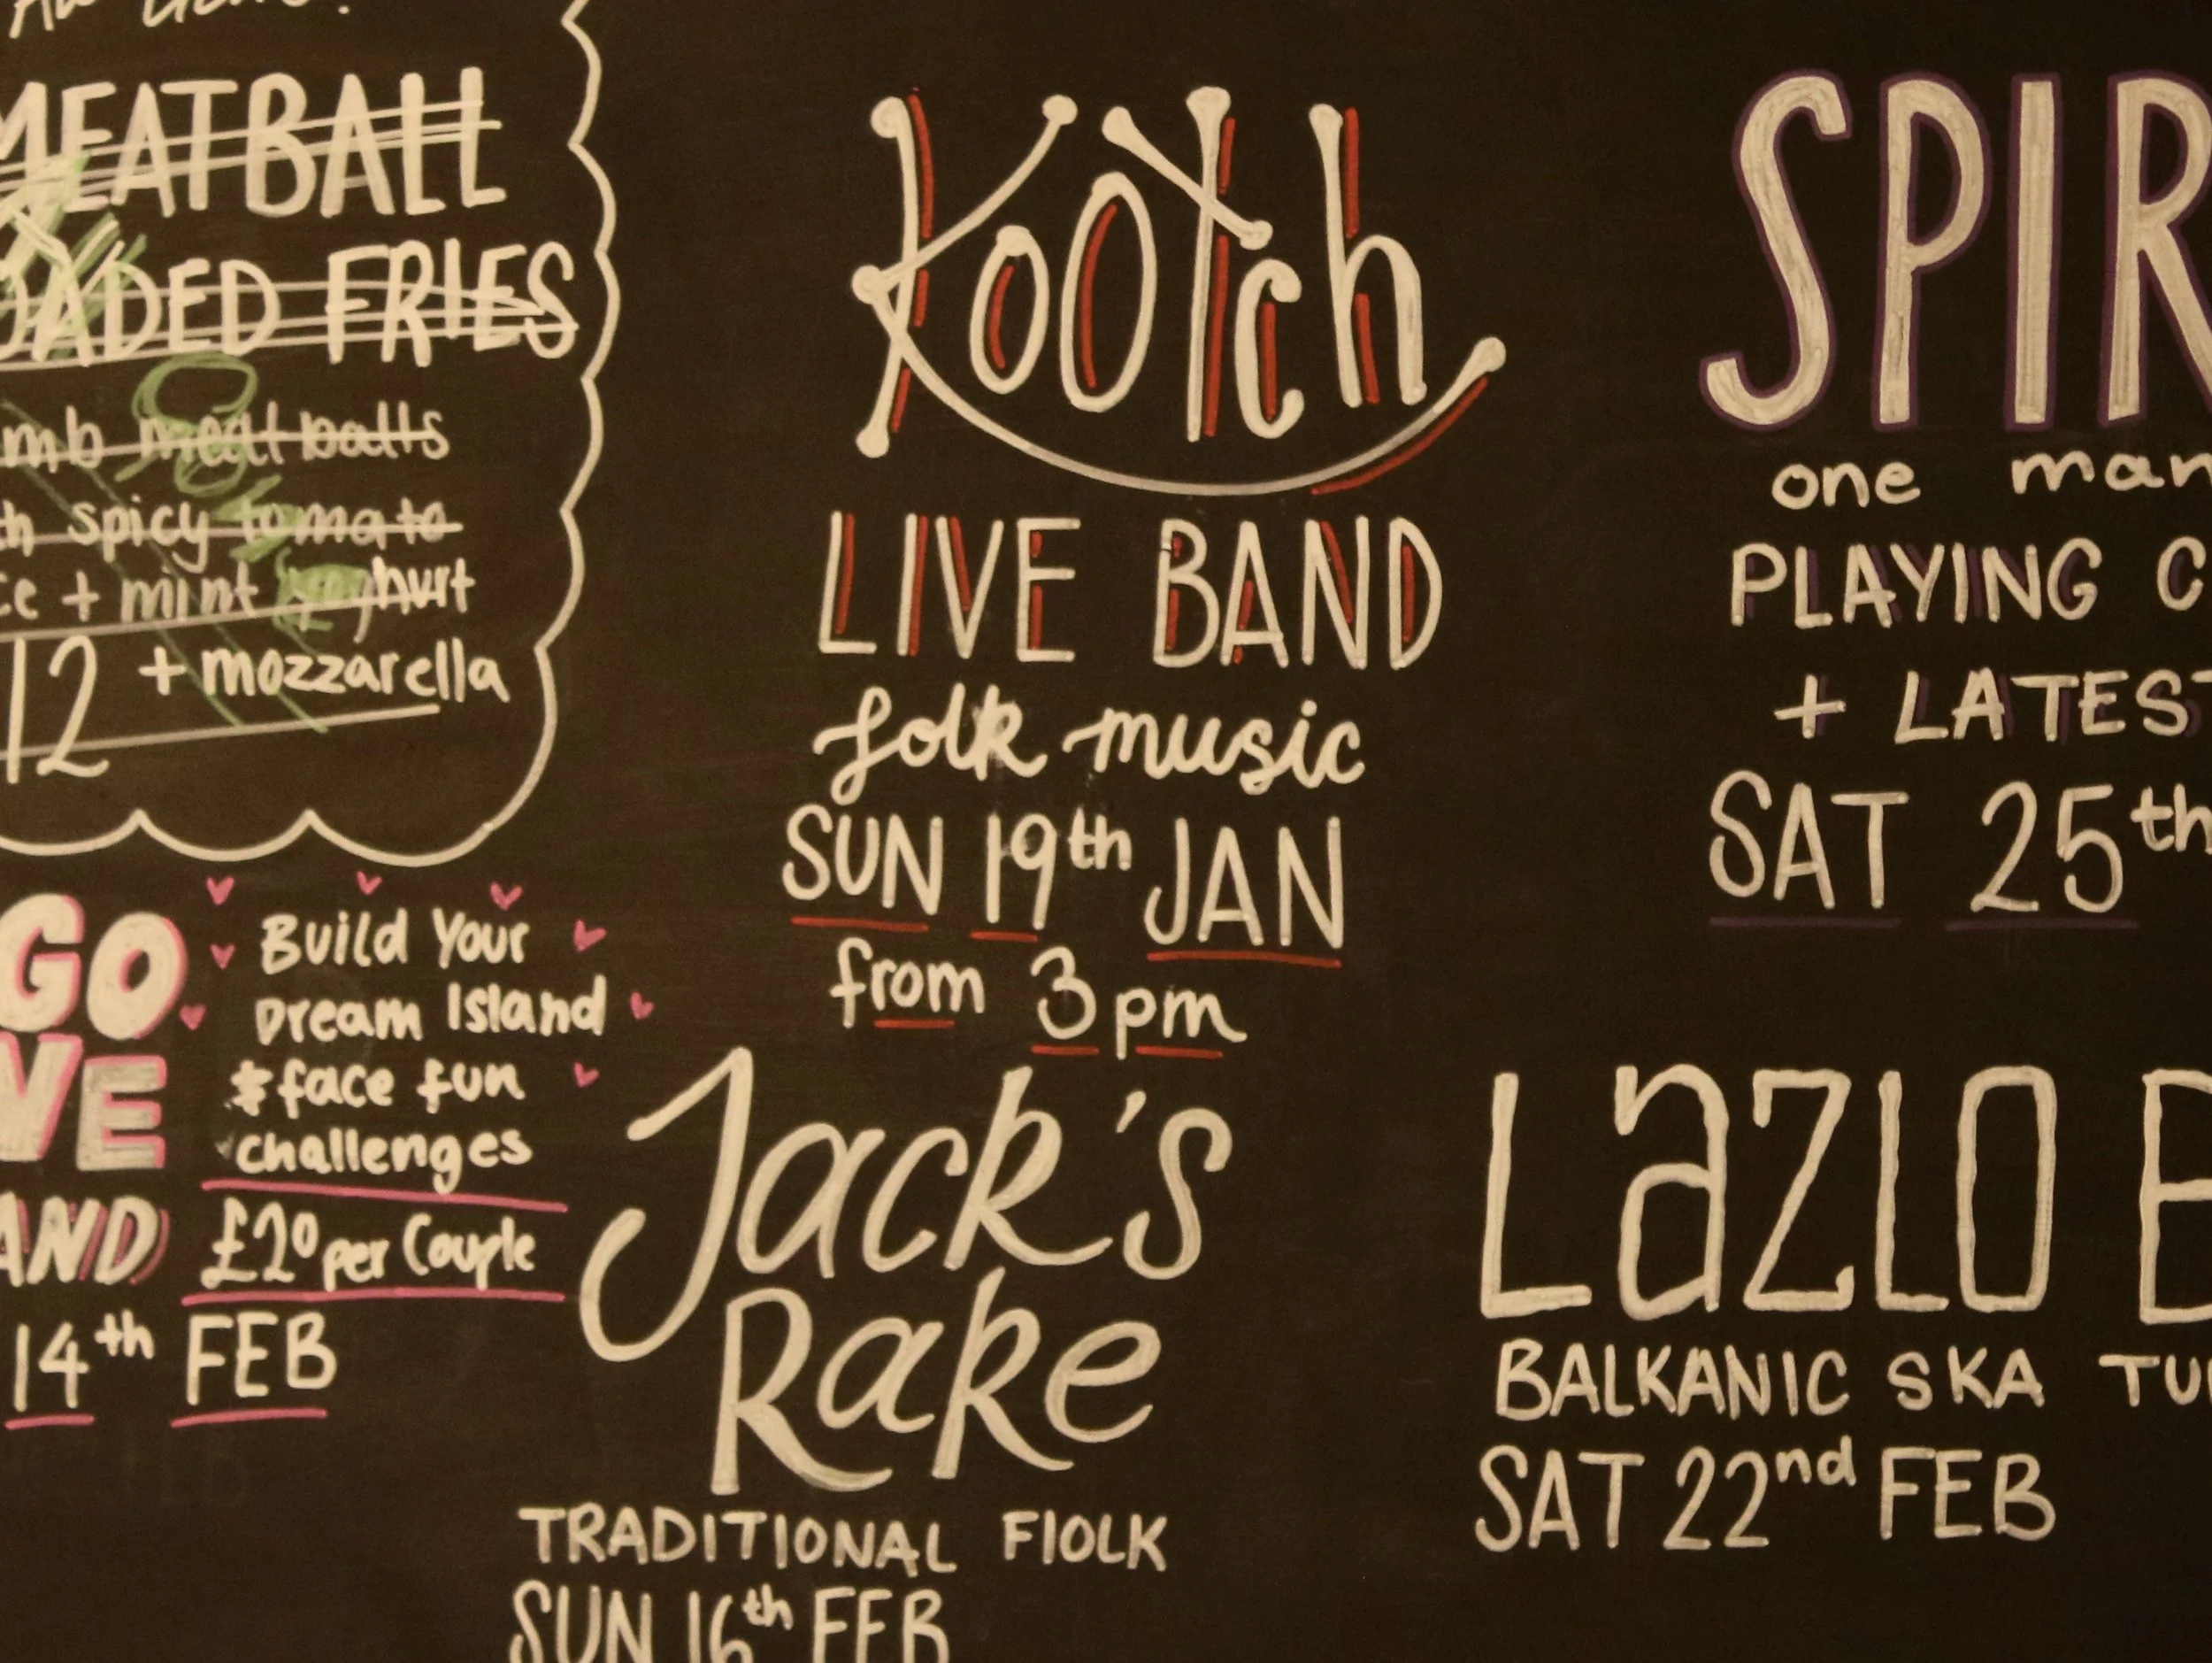 MEATBALL
LOADED FRIES
meatballs
spicy tomato
+ mint yoghurt
12 + mozzarella
GO
Build Your
Dream Island
& face fun
challenges
AND
£20 per Couple
14th FEB
Kootch
LIVE BAND
folk music
SUN 19th JAN
from 3pm
Jack's
Rake
TRADITIONAL FIOLK
SUN 16th FEB
SPIR
one man
PLAYING C
+ LATEST
SAT 25th
LaZLO
BALKANIC SKA
SAT 22nd FEB